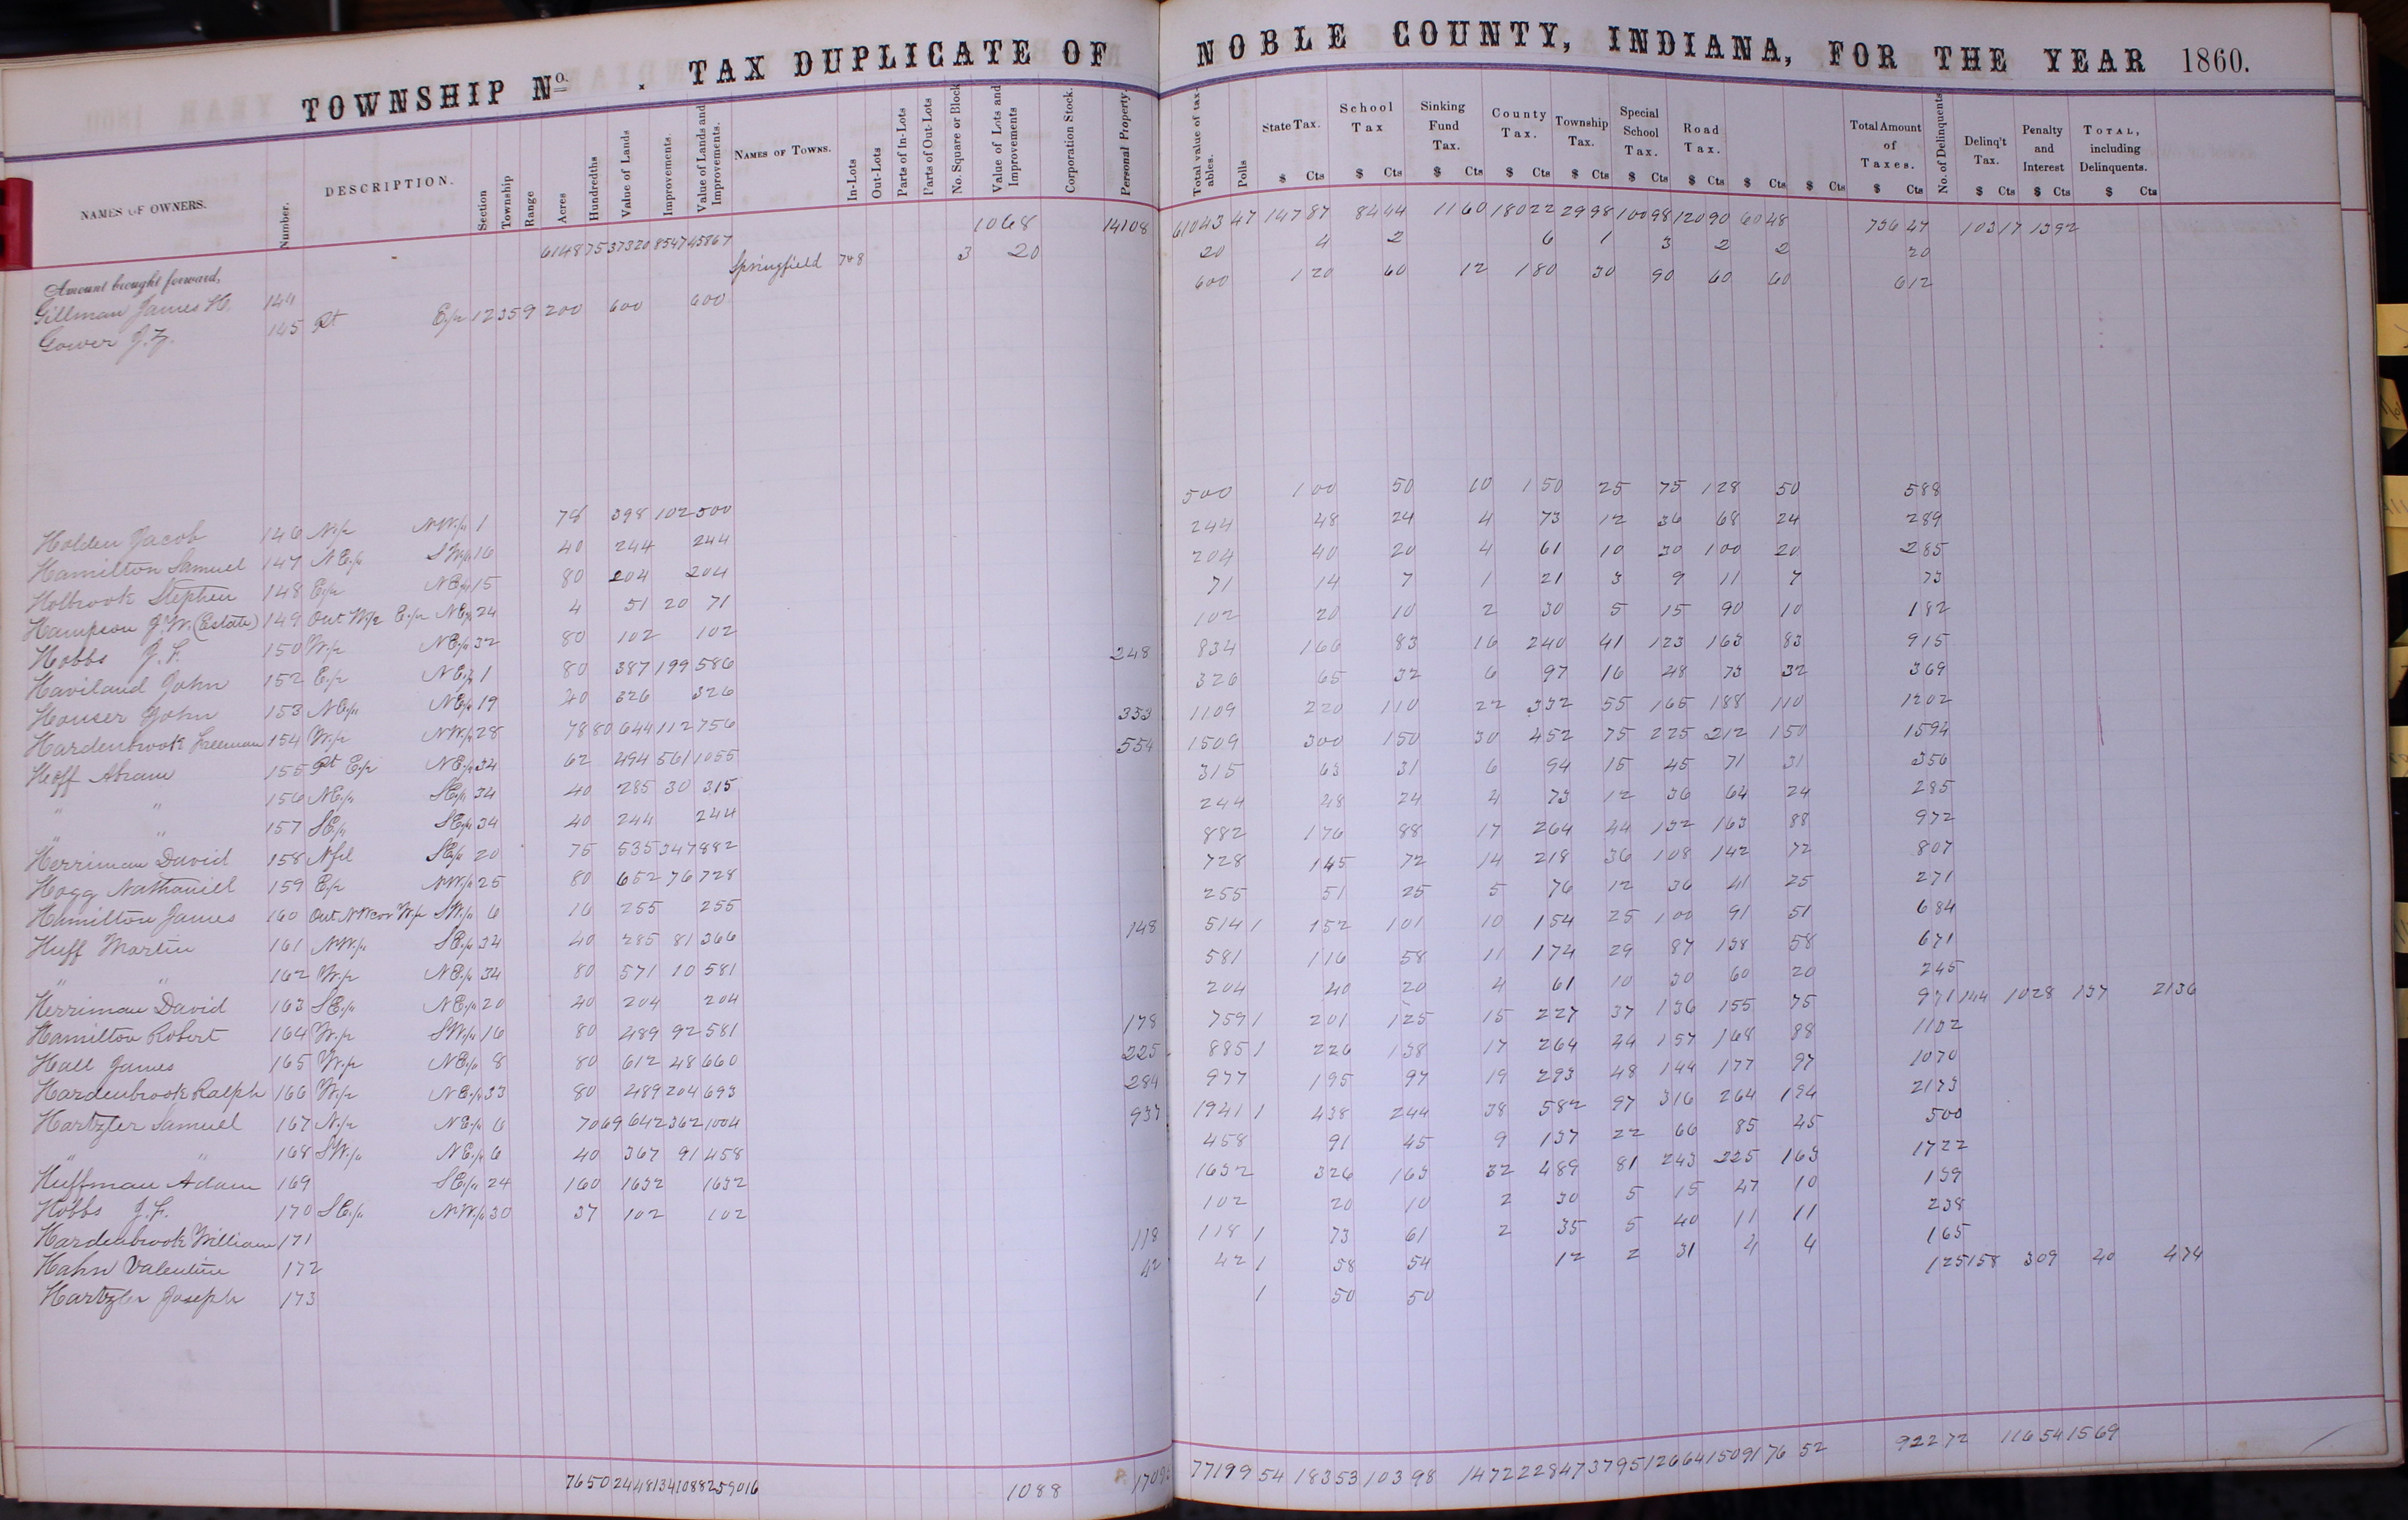 TOWNSHIP No. . TAX DUPLICATE OF NOBLE COUNTY, INDIANA, FOR THE YEAR 1860.
NAMES OF OWNERS. Number. DESCRIPTION. Section Township Range Acres Hundredths Value of Lands Improvements. Value of Lands and Improvements. NAMES OF TOWNS. In-Lots Out-Lots Parts of In-Lots Parts of Out-Lots No. Square or Block Value of Lots and Improvements Corporation Stock. Personal Property. Total value of taxables. Polls State Tax. School Tax Sinking Fund Tax. County Tax. Township Tax. Special School Tax. Road Tax. Total Amount of Taxes. No. of Delinquents Delinq't Tax. Penalty and Interest TOTAL, including Delinquents.
$ Cts $ Cts $ Cts $ Cts $ Cts $ Cts $ Cts $ Cts $ Cts $ Cts $ Cts $ Cts $ Cts
Amount brought forward, 6148 75 37320 8547 45867 1068 14108 61043 47 147 87 84 44 11 60 180 22 29 98 100 98 120 90 60 48 736 47 103 17 13 92
Gillman James H. 144 Springfield 7&8 3 20 20 4 2 6 1 3 2 2 20
Gower J. Z. 145 Pt E½ 12 35 9 200 600 600 600 1 20 60 12 1 80 30 90 60 60 6 12
Holden Jacob 146 N½ NW¼ 1 78 398 102 500 500 1 00 50 10 1 50 25 75 1 28 50 5 88
Hamilton Samuel 147 NE¼ SW¼ 16 40 244 244 244 48 24 4 73 12 36 68 24 2 89
Holbrook Stephen 148 E½ NE¼ 15 80 204 204 204 40 20 4 61 10 30 1 00 20 2 85
Hampson J. W. (Estate) 149 Out W½ E½ NE¼ 24 4 51 20 71 71 14 7 1 21 3 9 11 7 73
Hobbs J. F. 150 W½ NE¼ 32 80 102 102 102 20 10 2 30 5 15 90 10 1 82
Haviland John 152 E½ NE¼ 1 80 387 199 586 248 834 1 66 83 16 2 40 41 1 23 1 63 83 9 15
Houser John 153 NE¼ NE¼ 19 40 326 326 326 65 32 6 97 16 48 73 32 3 69
Hardenbrook Freeman 154 W½ NW¼ 28 78 80 644 112 756 353 1109 2 20 1 10 22 3 32 55 1 65 1 88 1 10 12 02
Hoff Abram 155 Pt E½ NE¼ 34 62 494 561 1055 554 1509 3 00 1 50 30 4 52 75 2 25 2 12 1 50 15 94
" " 156 NE¼ SE¼ 34 40 285 30 315 315 63 31 6 94 15 45 71 31 3 56
" " 157 SE¼ SE¼ 34 40 244 244 244 48 24 4 73 12 36 64 24 2 85
Herriman David 158 Nfd SE¼ 20 75 535 347 882 882 1 76 88 17 2 64 44 1 32 1 63 88 9 72
Hogg Nathaniel 159 E½ NW¼ 25 80 652 76 728 728 1 45 72 14 2 18 36 1 08 1 42 72 8 07
Hamilton James 160 Out NWcor W½ SW¼ 6 16 255 255 255 51 25 5 76 12 36 41 25 2 71
Huff Martin 161 NW¼ SE¼ 34 40 285 81 366 148 514 1 1 52 1 01 10 1 54 25 1 00 91 51 6 84
" " 162 W½ NE¼ 34 80 571 10 581 581 1 16 58 11 1 74 29 87 1 38 58 6 71
Herriman David 163 SE¼ NE¼ 20 40 204 204 204 40 20 4 61 10 30 60 20 2 45
Hamilton Robert 164 W½ SW¼ 16 80 489 92 581 178 759 1 2 01 1 25 15 2 27 37 1 36 1 55 75 9 71 144 10 28 1 37 21 36
Hall James 165 W½ NE¼ 8 80 612 48 660 225 885 1 2 26 1 38 17 2 64 44 1 57 1 68 88 11 02
Hardenbrook Ralph 166 W½ NE¼ 33 80 489 204 693 284 977 1 95 97 19 2 93 48 1 44 1 77 97 10 70
Hartzler Samuel 167 N½ NE¼ 6 70 69 642 362 1004 937 1941 1 4 38 2 44 38 5 82 97 3 16 2 64 1 94 21 73
" " 168 SW¼ NE¼ 6 40 367 91 458 458 91 45 9 1 37 22 66 85 45 5 00
Huffman Adam 169 SE¼ 24 160 1632 1632 1632 3 26 1 63 32 4 89 81 2 43 2 25 1 63 17 22
Hobbs J. F. 170 SE¼ NW¼ 30 37 102 102 102 20 10 2 30 5 15 47 10 1 39
Hardenbrook William 171 118 118 1 73 61 2 35 5 40 11 11 2 38
Hahn Valentine 172 42 42 1 58 54 12 2 31 4 4 1 65
Hartzler Joseph 173 1 50 50 1 25 158 3 09 40 4 74
7650 24 48134 10882 59016 1088 77199 54 183 53 103 98 14 72 228 47 37 95 126 64 150 91 76 52 922 72 116 54 15 69